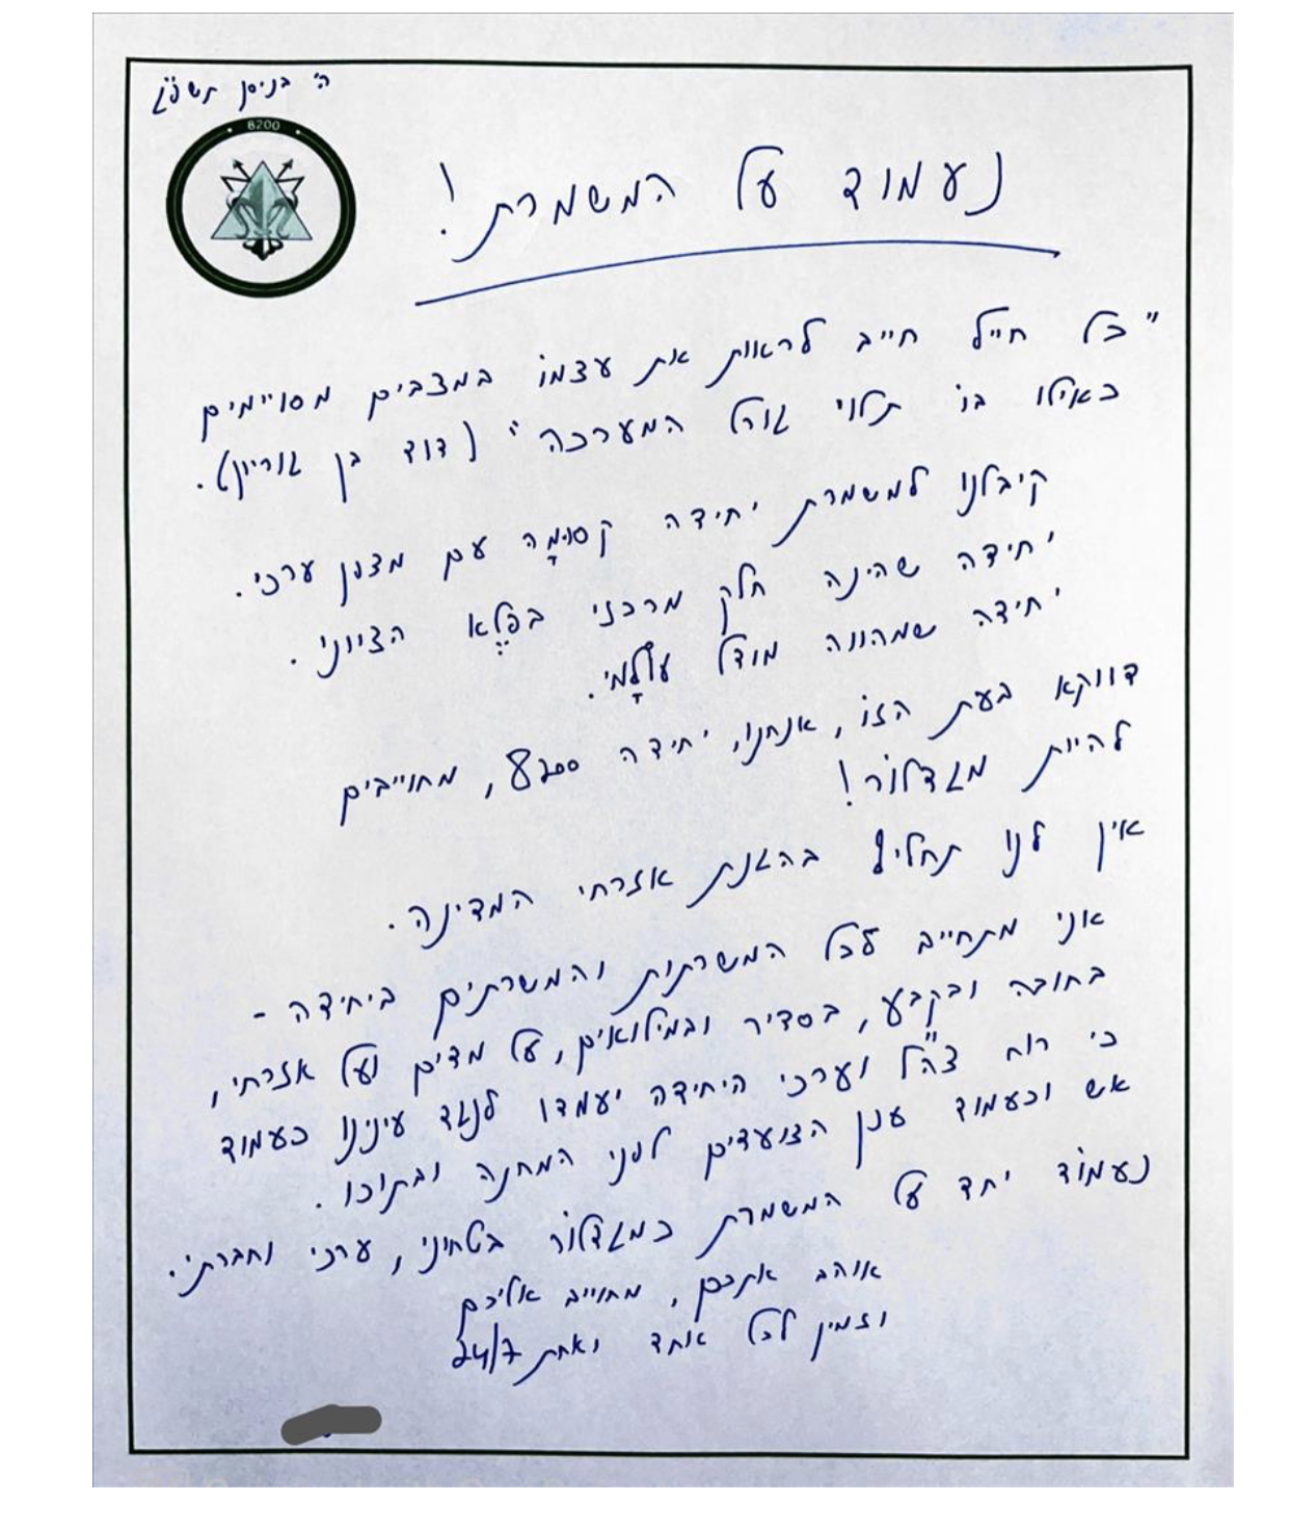 ה' בניסן תשפ"ג
8200
נעמוד על המשמרת!
"כל חייל חייב לראות את עצמו במצבים מסויימים
כאילו בו תלוי גורל המערכה" (דוד בן גוריון).
קיבלנו למשמרת יחידה קסומה עם מצפן ערכי.
יחידה שהינה חלק מרכזי בפלא הציוני.
יחידה שמהווה מודל עולמי.
דווקא בעת הזו, אנחנו, יחידה 8200, מחוייבים
להיות מגדלור!
אין לנו תחליף בהגנת אזרחי המדינה.
אני מתחייב לכל המשרתות והמשרתים ביחידה -
בחובה ובקבע, בסדיר ובמילואים, על מדים ועל אזרחי,
כי רוח צה"ל וערכי היחידה יעמדו לנגד עינינו כעמוד
אש וכעמוד ענן הצועדים לפני המחנה ובתוכו.
נעמוד יחד על המשמרת כמגדלור בטחוני, ערכי וחברתי.
אוהב אתכם, מחוייב אליכם
וזמין לכל אחד ואחת 24/7